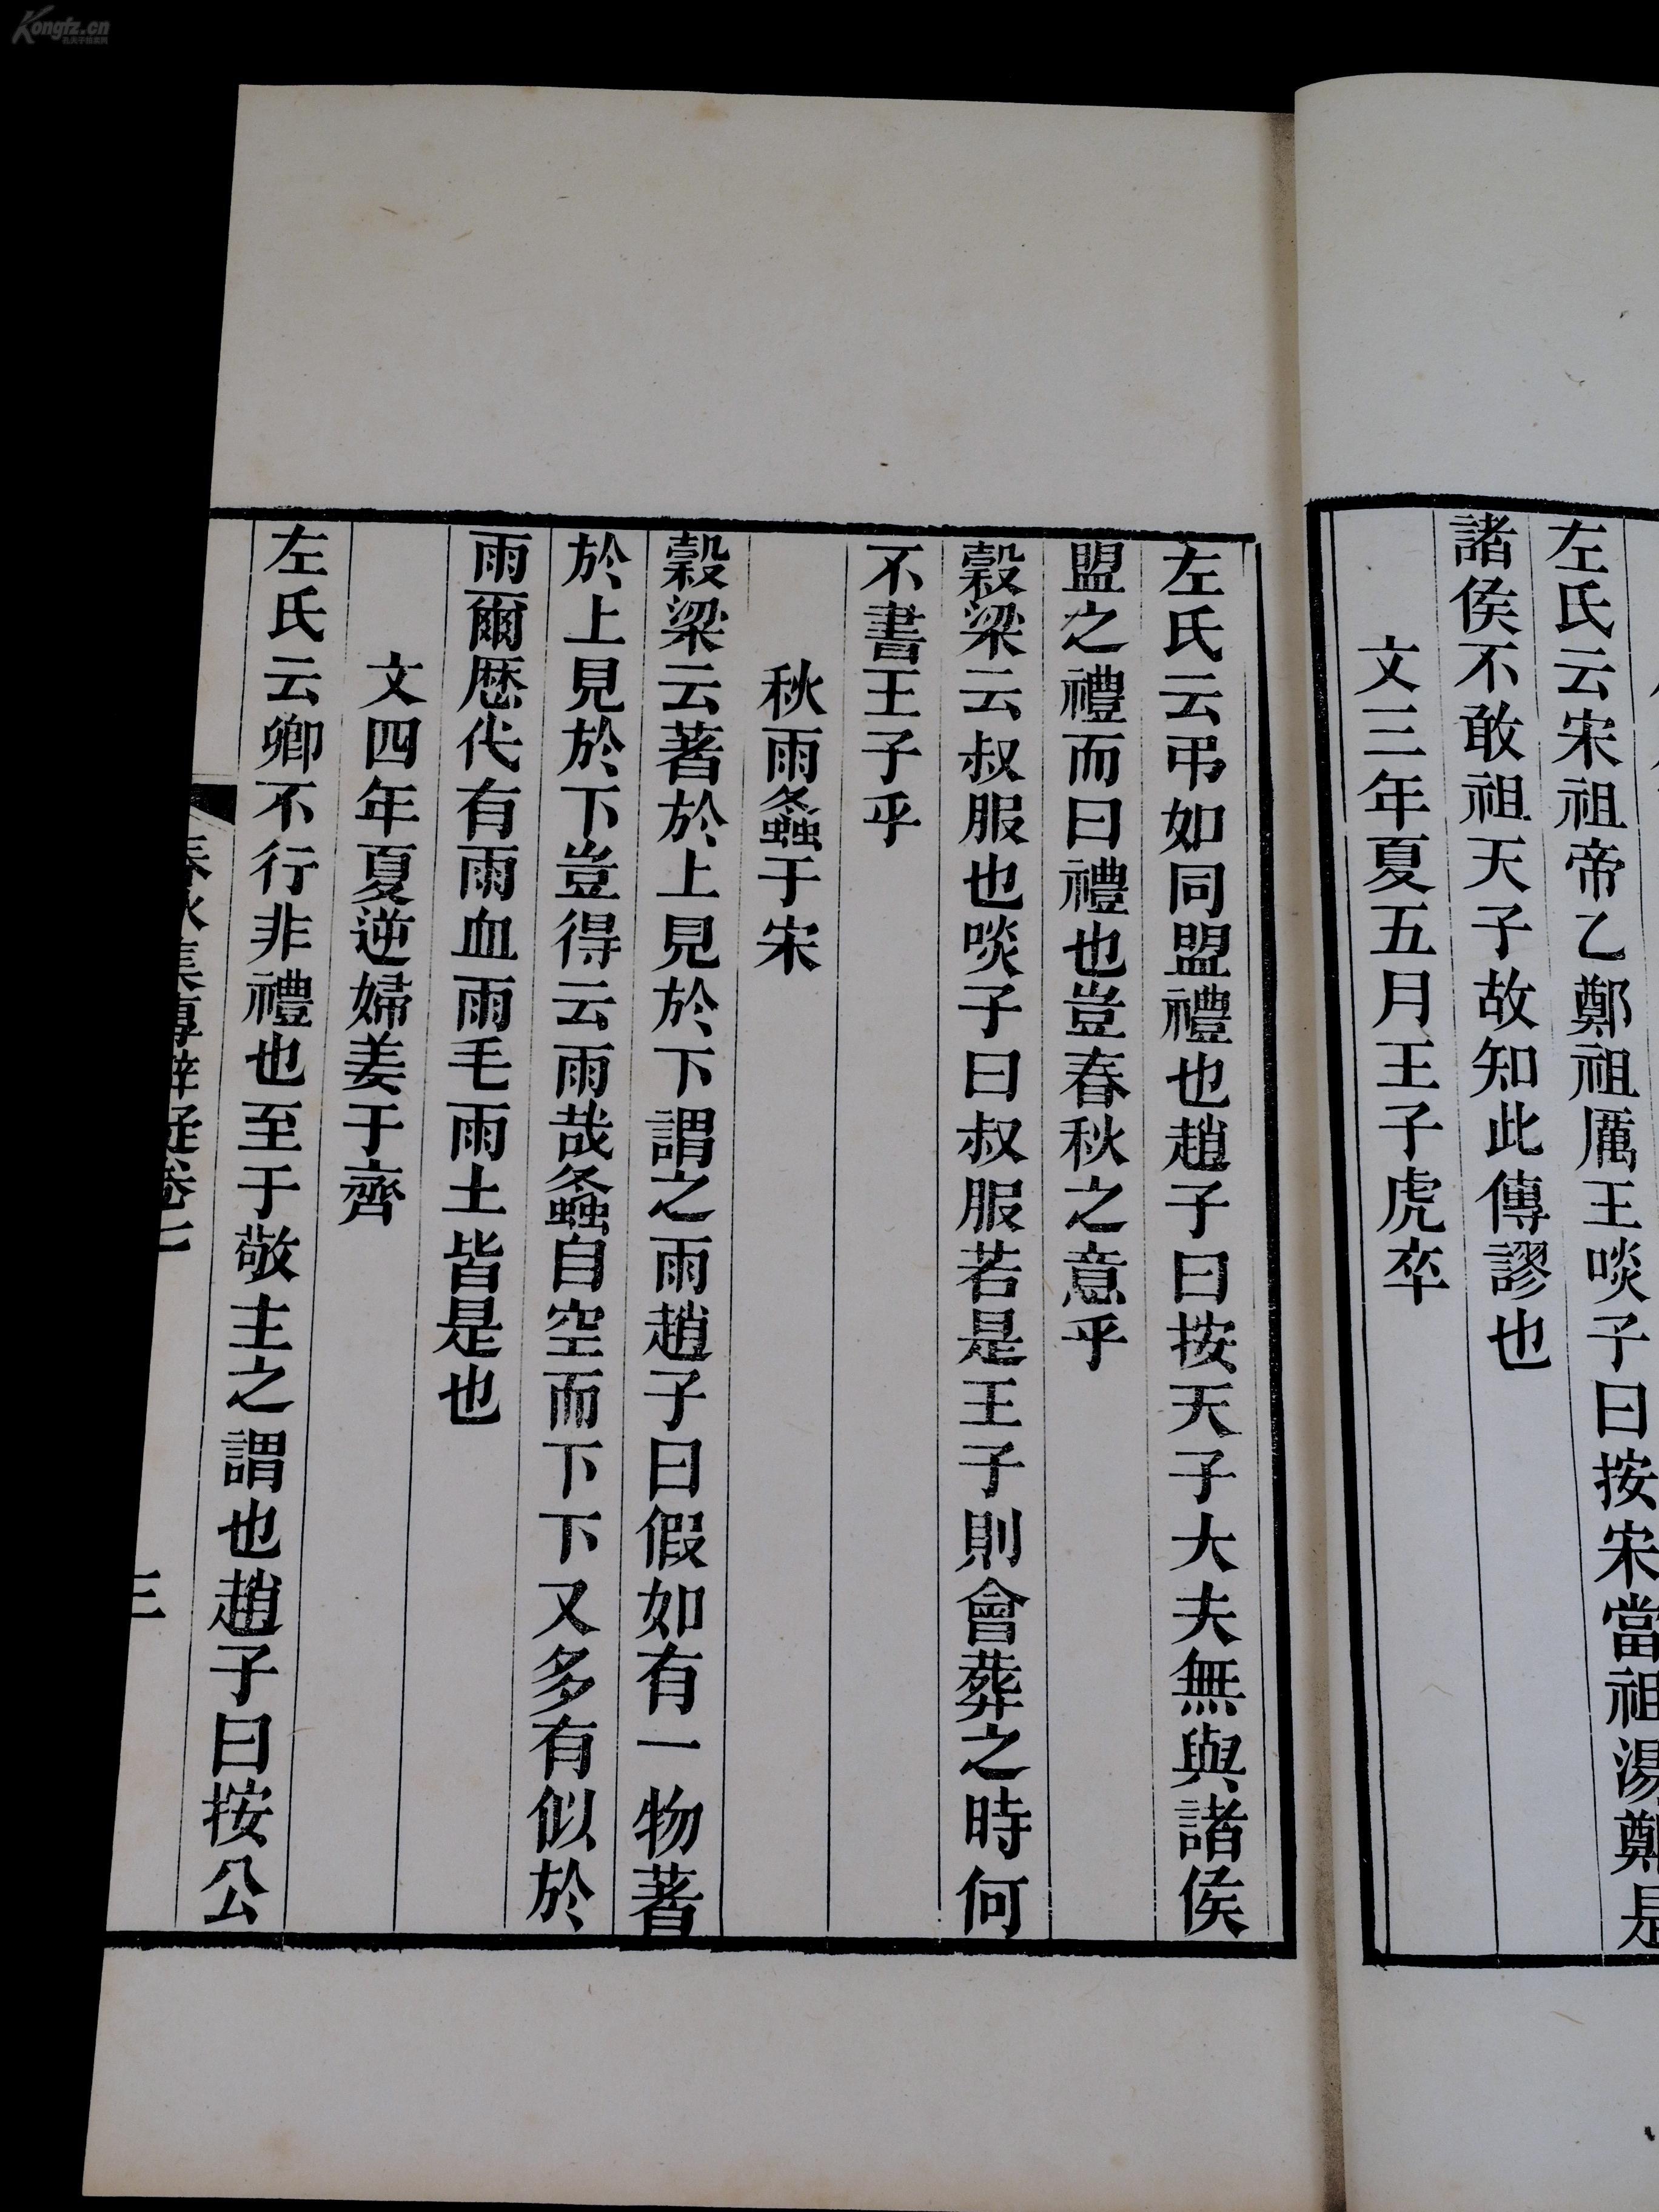 左氏云宋祖帝乙鄭祖厲王啖子曰按宋當祖湯鄭是
諸侯不敢祖天子故知此傳謬也
文三年夏五月王子虎卒
左氏云弔如同盟禮也趙子曰按天子大夫無與諸侯
盟之禮而曰禮也豈春秋之意乎
穀梁云叔服也啖子曰叔服若是王子則會葬之時何
不書王子乎
秋雨螽于宋
穀梁云著於上見於下謂之雨趙子曰假如有一物著
於上見於下豈得云雨哉螽自空而下下又多有似於
雨爾歷代有雨血雨毛雨土皆是也
文四年夏逆婦姜于齊
左氏云卿不行非禮也至于敬主之謂也趙子曰按公
春秋集傳辯疑卷七
三
Kongfz.cn